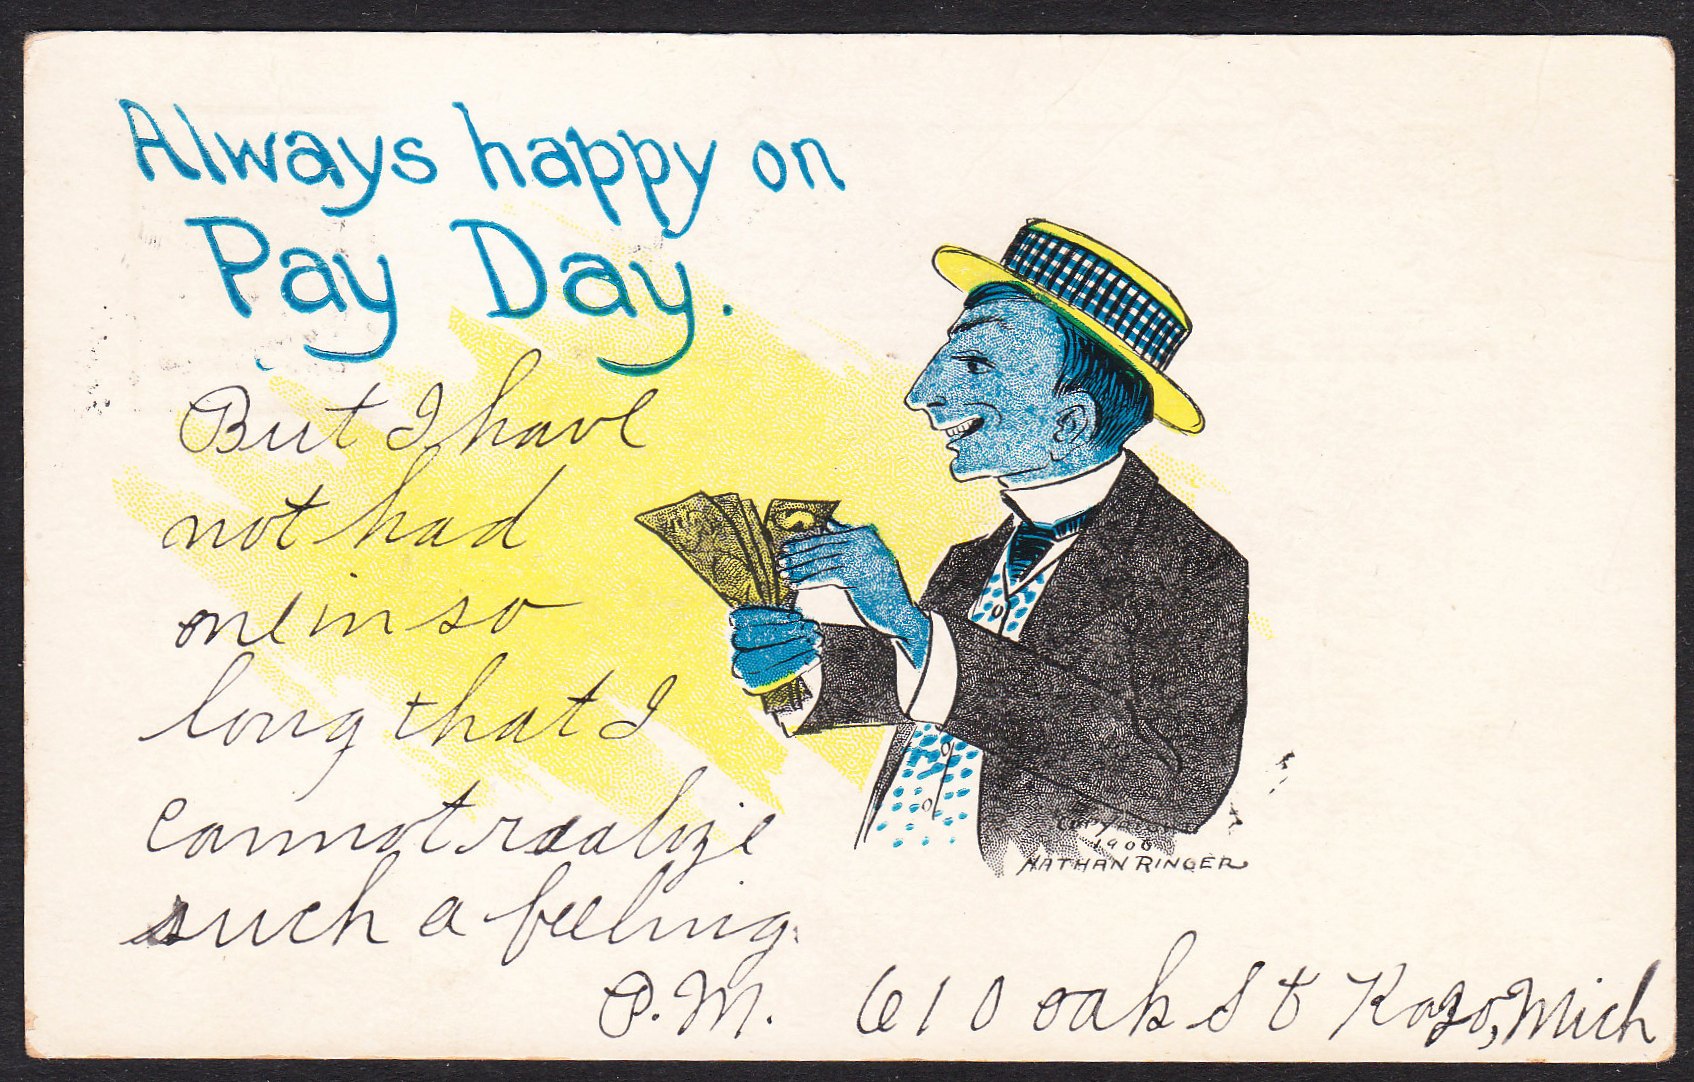 Always happy on
Pay Day.
But I have
not had
one in so
long that I
cannot realize
such a feeling.
P.M. 610 Oak St Kazo, Mich
Copyright
1906
NATHAN RINGER